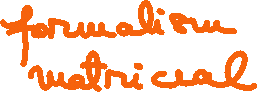 formalism
matricial